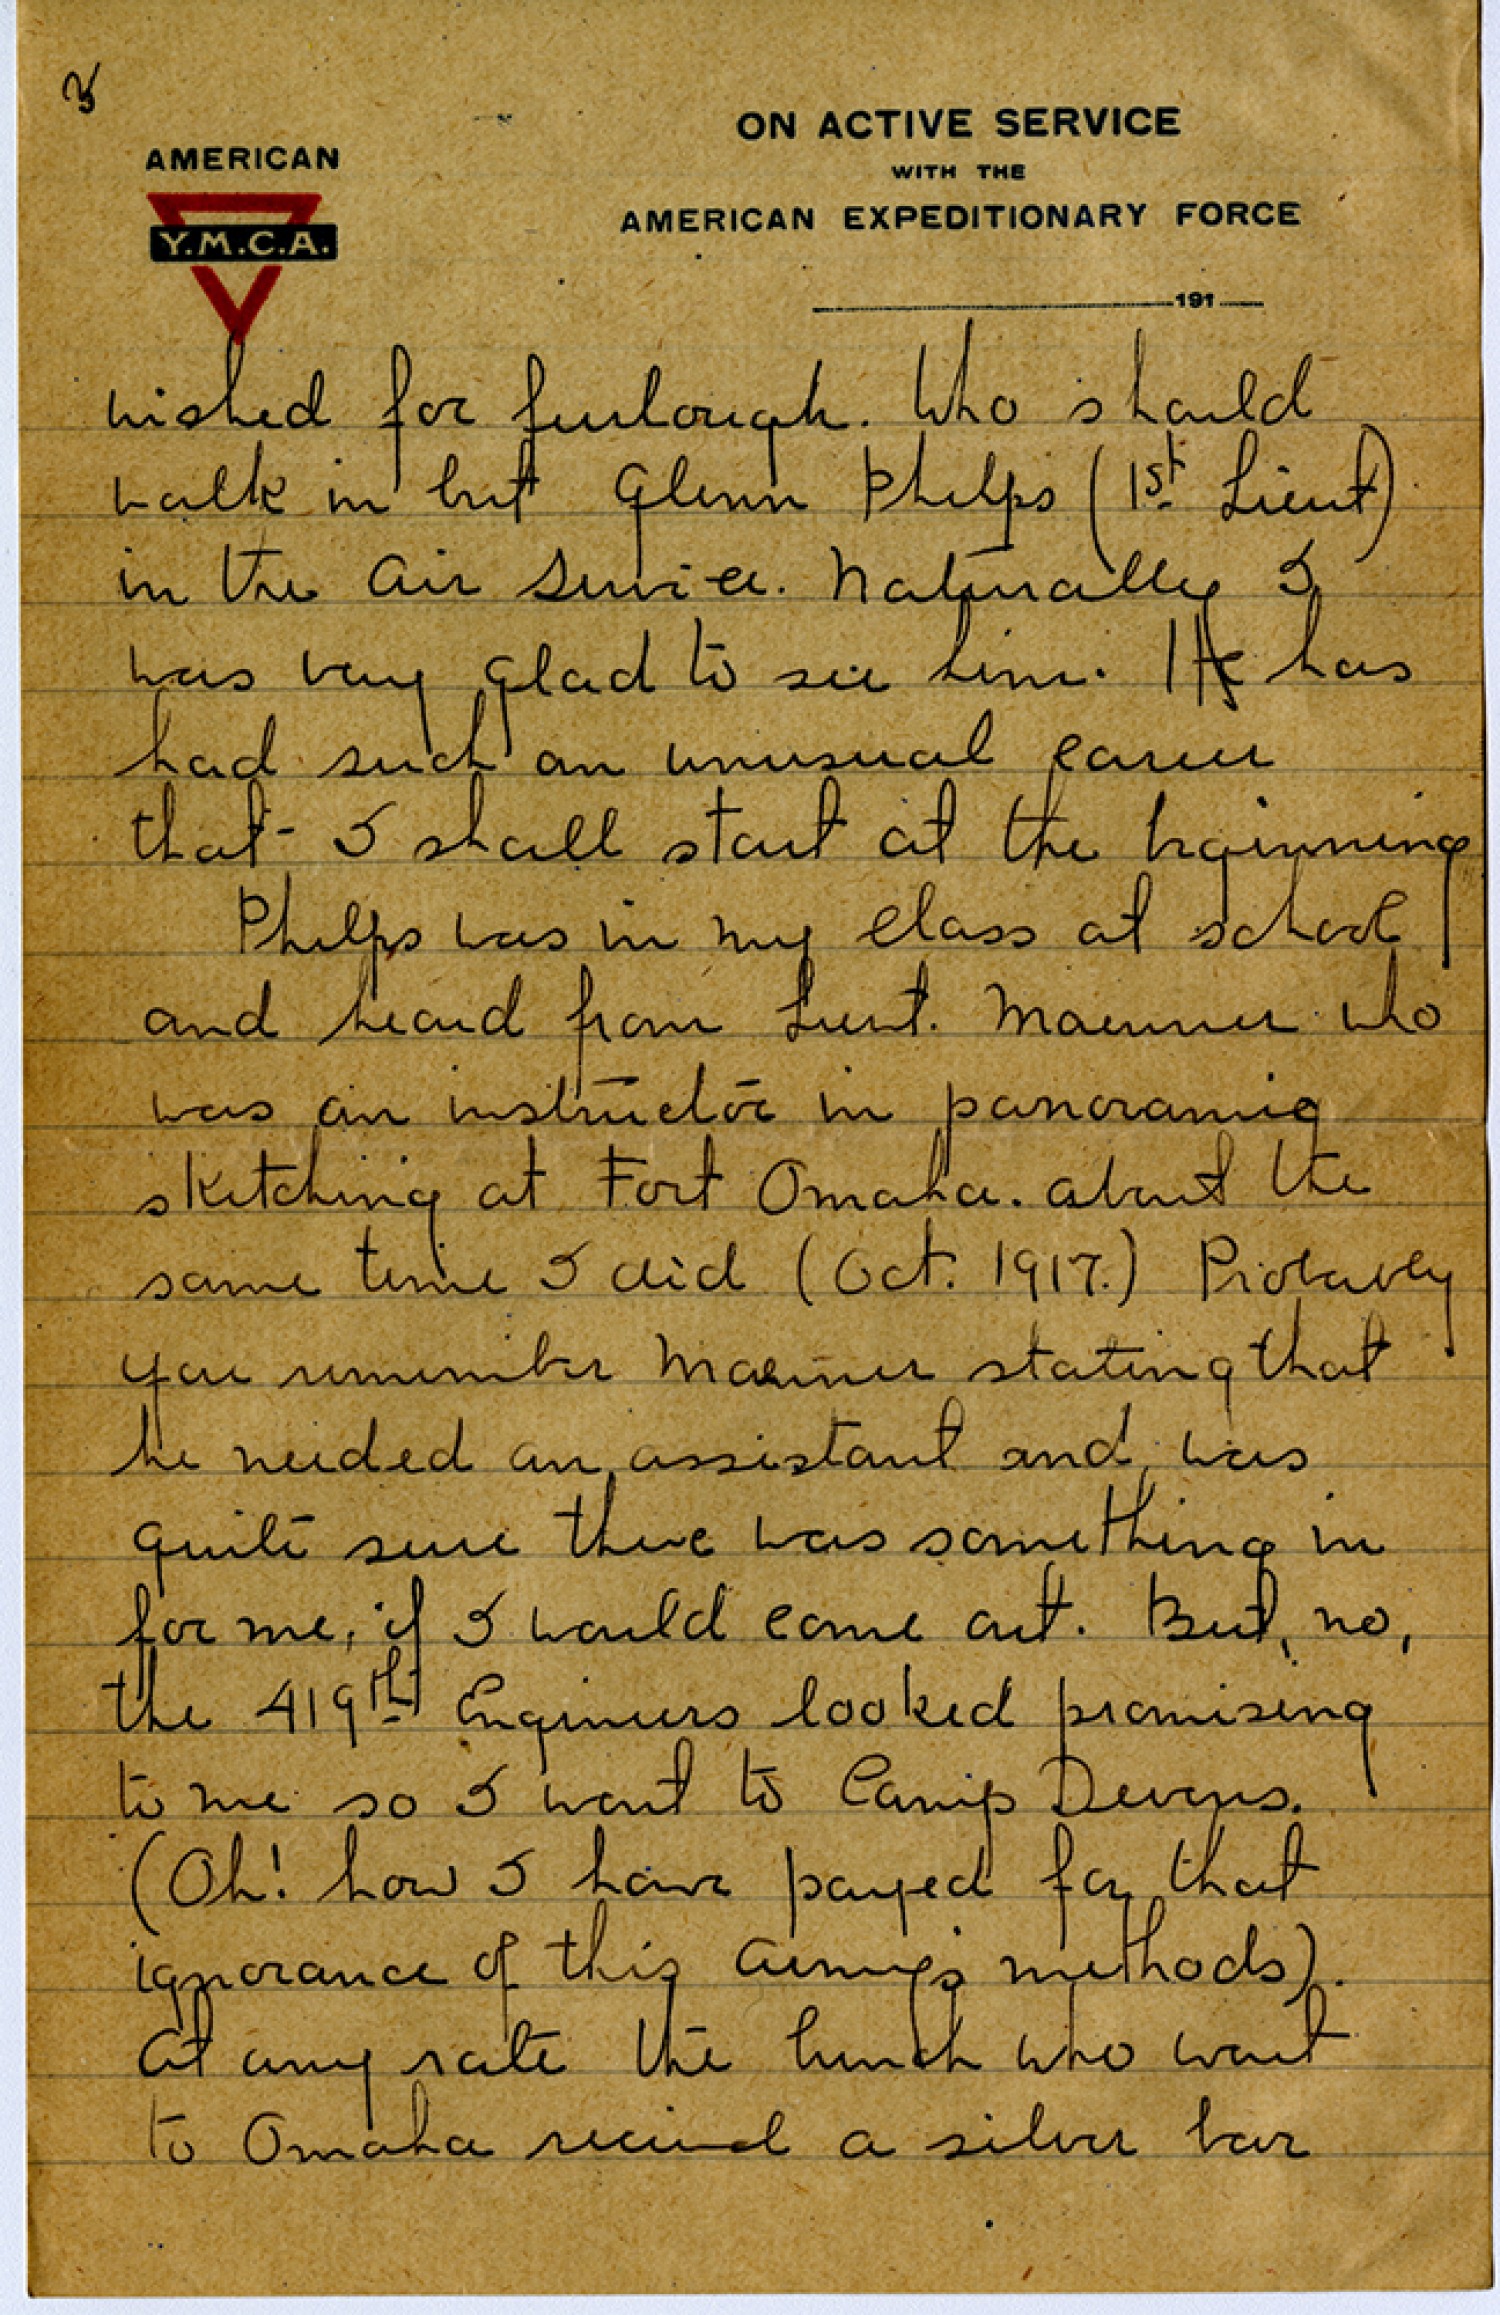 3
AMERICAN
Y.M.C.A.
ON ACTIVE SERVICE
WITH THE
AMERICAN EXPEDITIONARY FORCE
191
wished for furlough. Who should
walk in but Glenn Phelps (1st Lieut)
in the Air Service. Naturally I
was very glad to see him. He has
had such an unusual career
that I shall start at the beginning
Phelps was in my class at school
and heard from Lieut. who
was an instructor in panoramic
sketching at Fort Omaha. about the
same time I did (Oct. 1917.) Probably
you remember stating that
he needed an assistant and was
quite sure there was something in
for me, if I would come out. But, no,
the 419th Engineers looked promising
to me so I went to Camp Devens.
(Oh! how I have payed for that
ignorance of this Army's methods).
At any rate the bunch who went
to Omaha received a silver bar